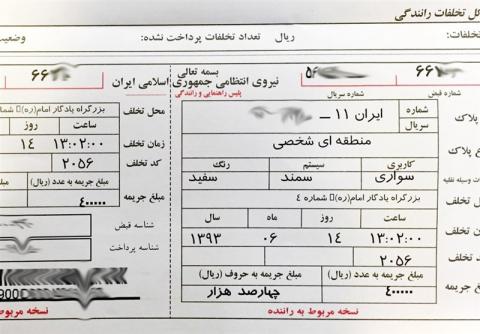 کل تخلفات رانندگی
تخلفات: ریال تعداد تخلفات پرداخت شده: وضعیت
بسمه تعالی
نیروی انتظامی جمهوری اسلامی ایران
پلیس راهنمایی و رانندگی
شماره قبض
۶۶۱
شماره سریال
۵۶
پلاک
شماره
سریال
ایران ۱۱ –
پلاک منطقه ای شخصی
کاربری سیستم رنگ
وسیله نقلیه سواری سمند سفید
محل تخلف بزرگراه یادگار امام(ره) شماره ۴
ساعت روز ماه سال
زمان تخلف ۱۳:۰۲:۰۰ ۱۴ ۰۶ ۱۳۹۳
کد تخلف ۲۰۵۶
مبلغ جریمه به عدد (ریال) مبلغ جریمه به حروف (ریال)
۴۰۰۰۰۰ چهارصد هزار
نسخه مربوط به راننده
۶۶
محل تخلف بزرگراه یادگار امام(ره) شماره
ساعت روز
زمان تخلف ۱۳:۰۲:۰۰ ۱۴
کد تخلف ۲۰۵۶
مبلغ جریمه مبلغ جریمه به عدد (ریال)
۴۰۰۰۰۰
شناسه قبض
شناسه پرداخت
نسخه مربوط